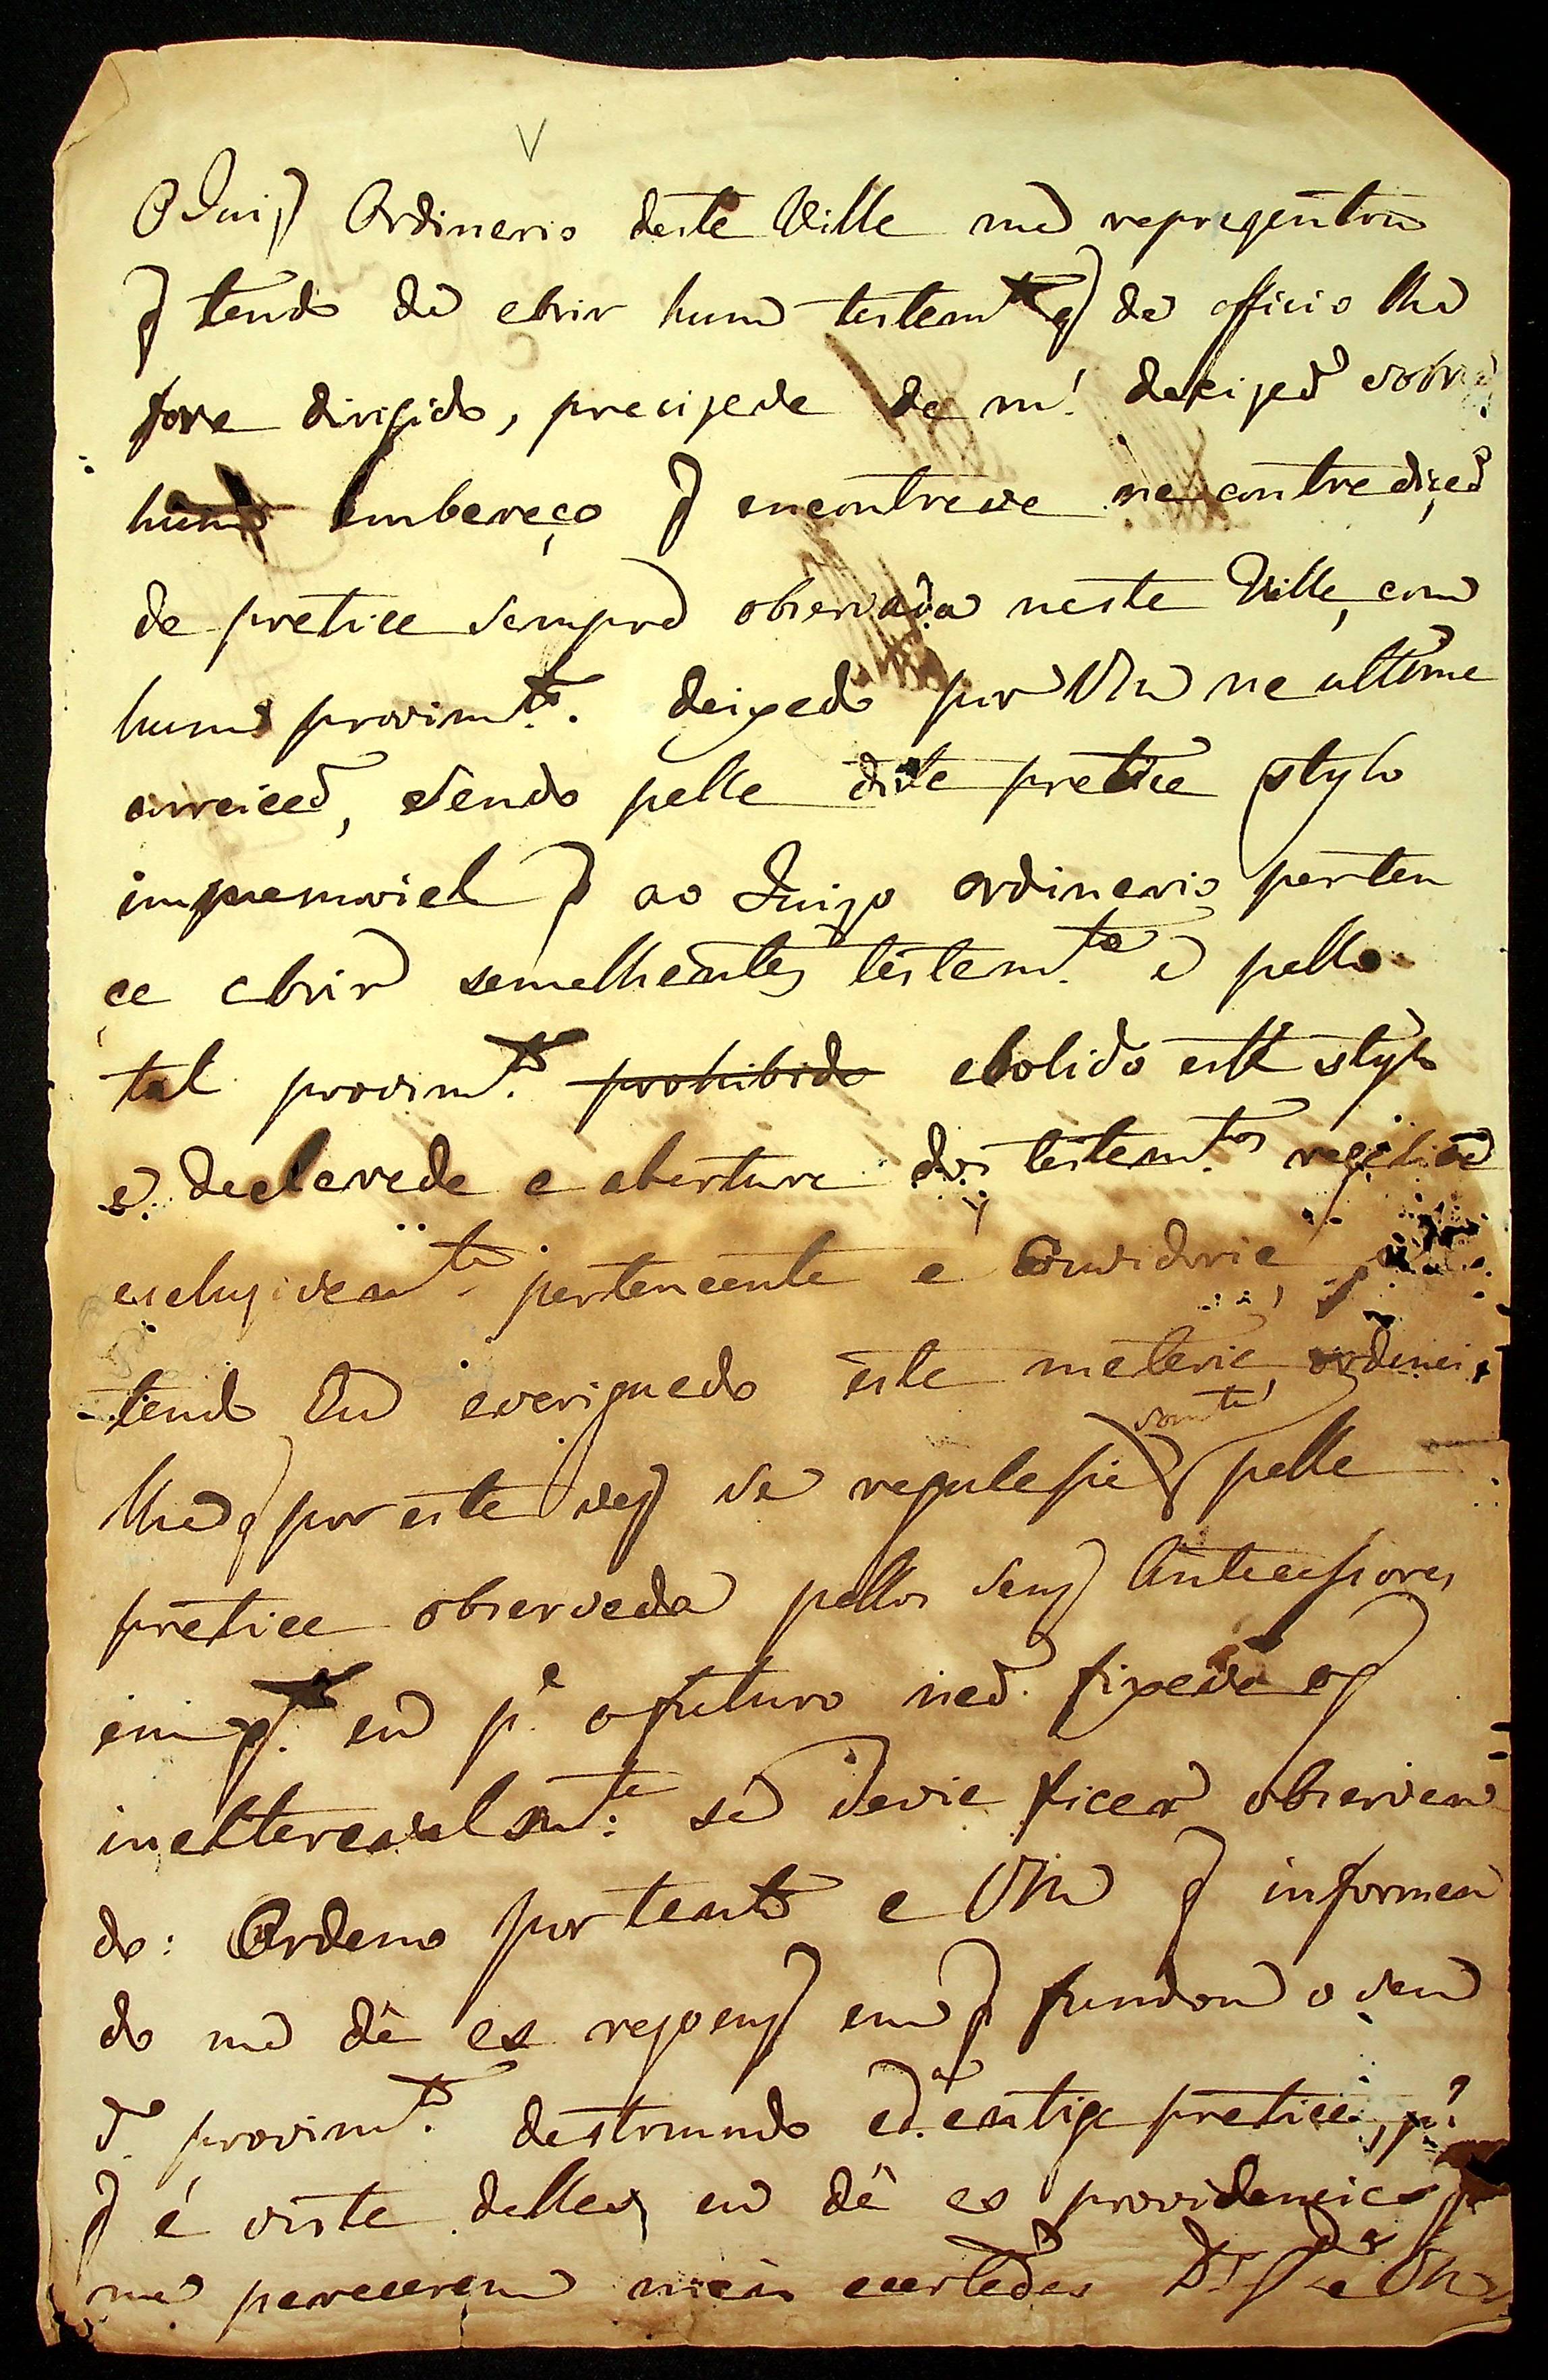 O Juiz Ordinario desta Villa me reprezentou
q tendo de abrir hum testam.to q de officio lhe
fora dirigido, precizava de m.ª decizaõ sobre
hum embaraço q encontrava na contradiçaõ
da pratica sempre observada nesta Villa, com
hum provim.to deixado por Vm na ultima
correiçaõ, sendo pella dita pratica stylo
impremiviel q ao Juizo ordinario perten
ce abrir semelhantes testam.tos e pello
tal provim.to prohibido abolido este stylo
e declarada a abertura dos testam.tos
excluzivam.te pertencente a Ouvidoria,
tendo Eu averiguado esta materia, ordenei
lhe q por esta vez se regulasse som.te pella
pratica observada pellos seus Antecessores
em q.to eu p.ª o futuro naõ fixava o q
inalteravelm.te se devia ficar observan
do: Ordeno portanto a Vm q informan
do me dê as razoens em q fundou o seu
d.º provim.to destruindo a d.ª antiga pratica, p.ª
q á vista dellas eu dê as providencias q
me parecerem mais acertadas D.s g.de a Vm